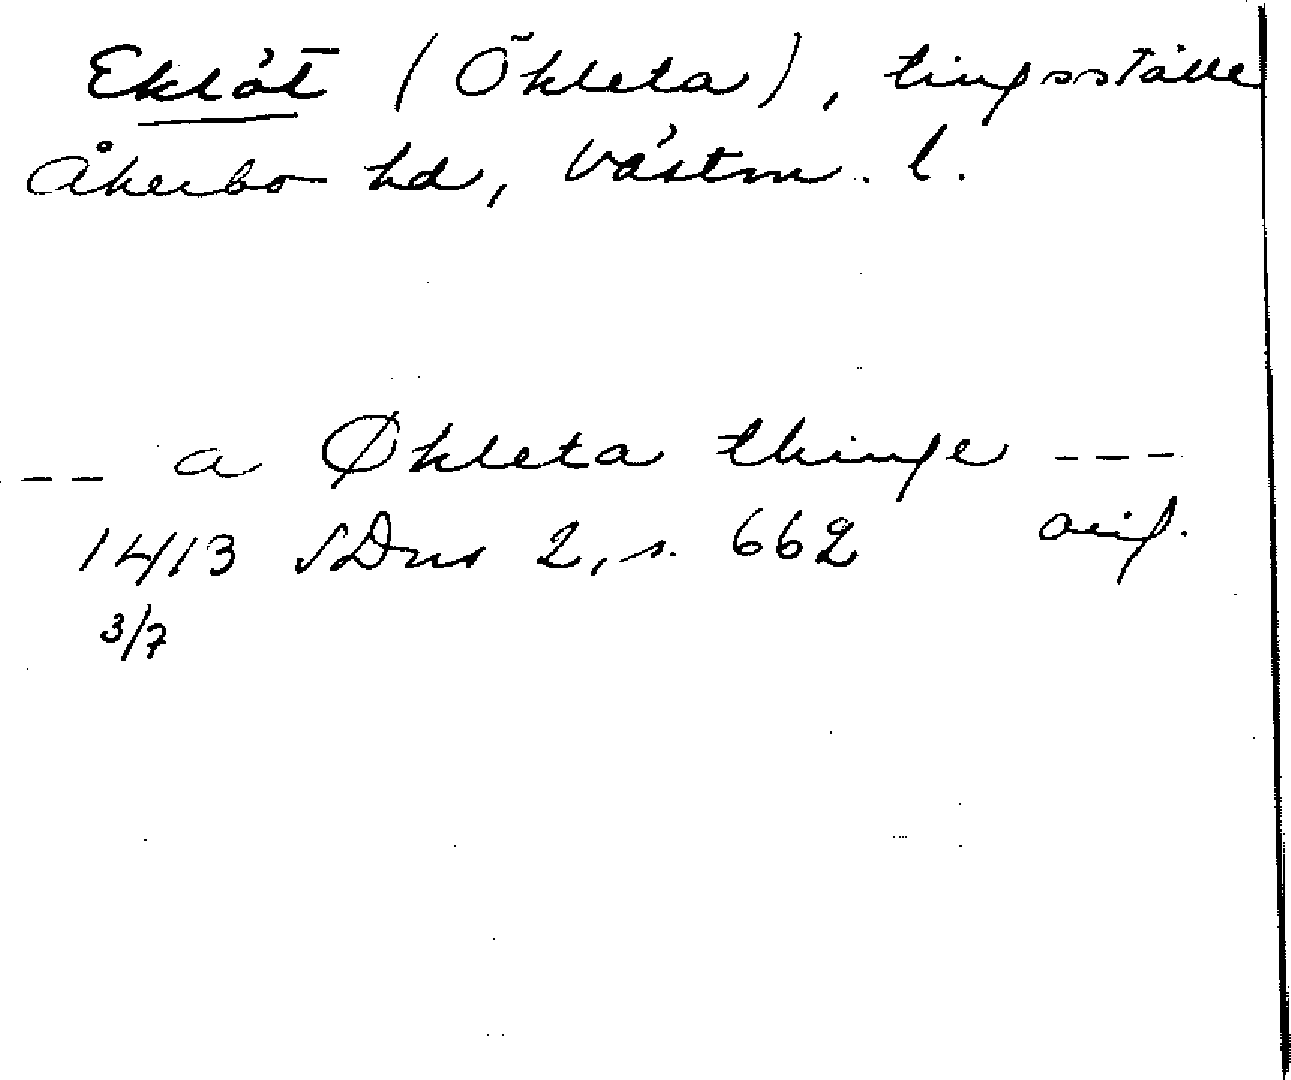 Eklöt (Ökleta), tingsställe
Åkerbo hd, Västm. l.
--- a Økleta thinge ---
1413 SDns 2, s. 662 orig.
3/7